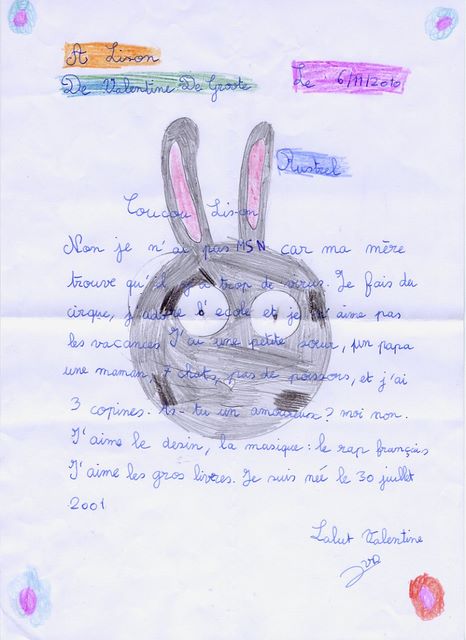 A Lison
De Valentine De Groote
Le : 6/11/2010
Rustrel
Coucou Lison
Non je n'ai pas MSN car ma mère
trouve qu'il y a trop de virus. Je fais du
cirque, j'adore l'école et je n'aime pas
les vacances J'ai une petite sœur, un papa
une maman, 7 chats, pas de poissons, et j'ai
3 copines. As-tu un amoureux? moi non.
J'aime le desin, la musique : le rap français
J'aime les gros livres. Je suis née le 30 juillet
2001
Salut Valentine